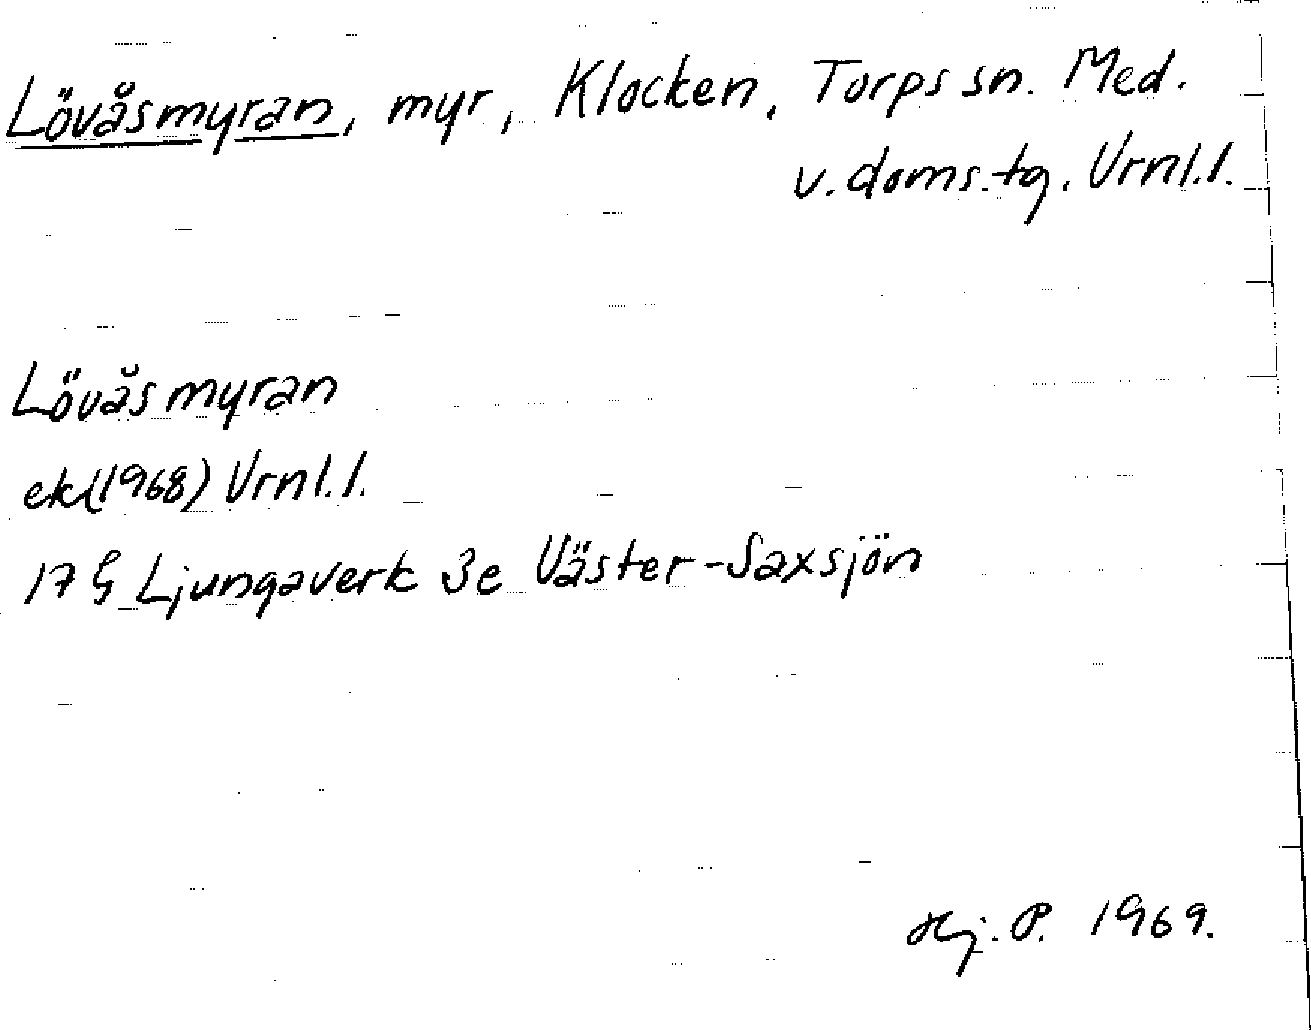 Lövåsmyran, myr, Klocken, Torps sn. Med.
v. doms. tg. Vrnl. l.
Lövåsmyran
ek (1968) Vrnl. l.
17 G Ljungaverk 3e Väster-Saxsjön
Hj. P. 1969.